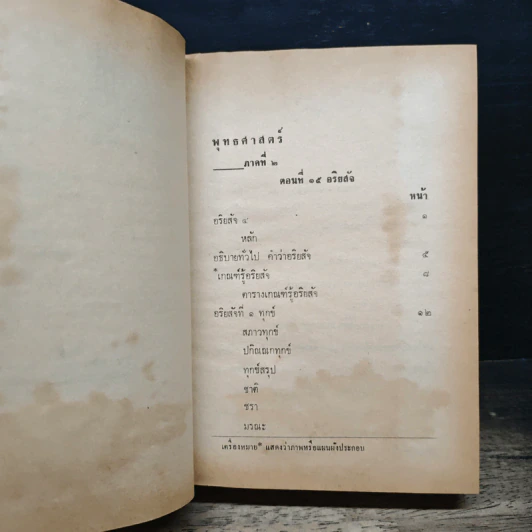 พุทธศาสตร์
ภาคที่ ๒
ตอนที่ ๑๕ อริยสัจ
หน้า
อริยสัจ ๔ ๑
หลัก
อธิบายทั่วไป คำว่าอริยสัจ ๕
*เกณฑ์รู้อริยสัจ ๘
ตารางเกณฑ์รู้อริยสัจ
อริยสัจที่ ๑ ทุกข์ ๑๒
สภาวทุกข์
ปกิณณกทุกข์
ทุกข์สรุป
ชาติ
ชรา
มรณะ
เครื่องหมาย* แสดงว่าภาพหรือแผนผังประกอบ